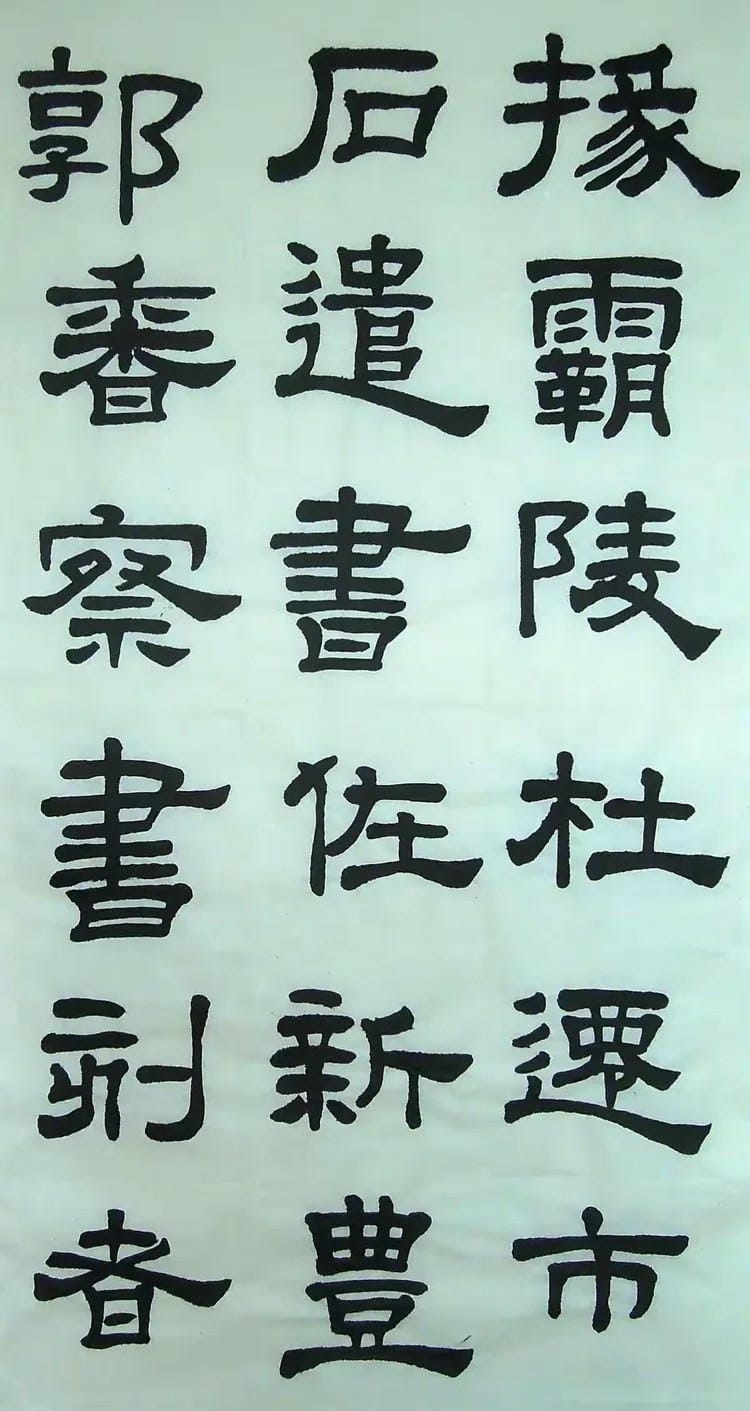 掾霸陵杜遷市
石遣書佐新豐
郭香察書刻者